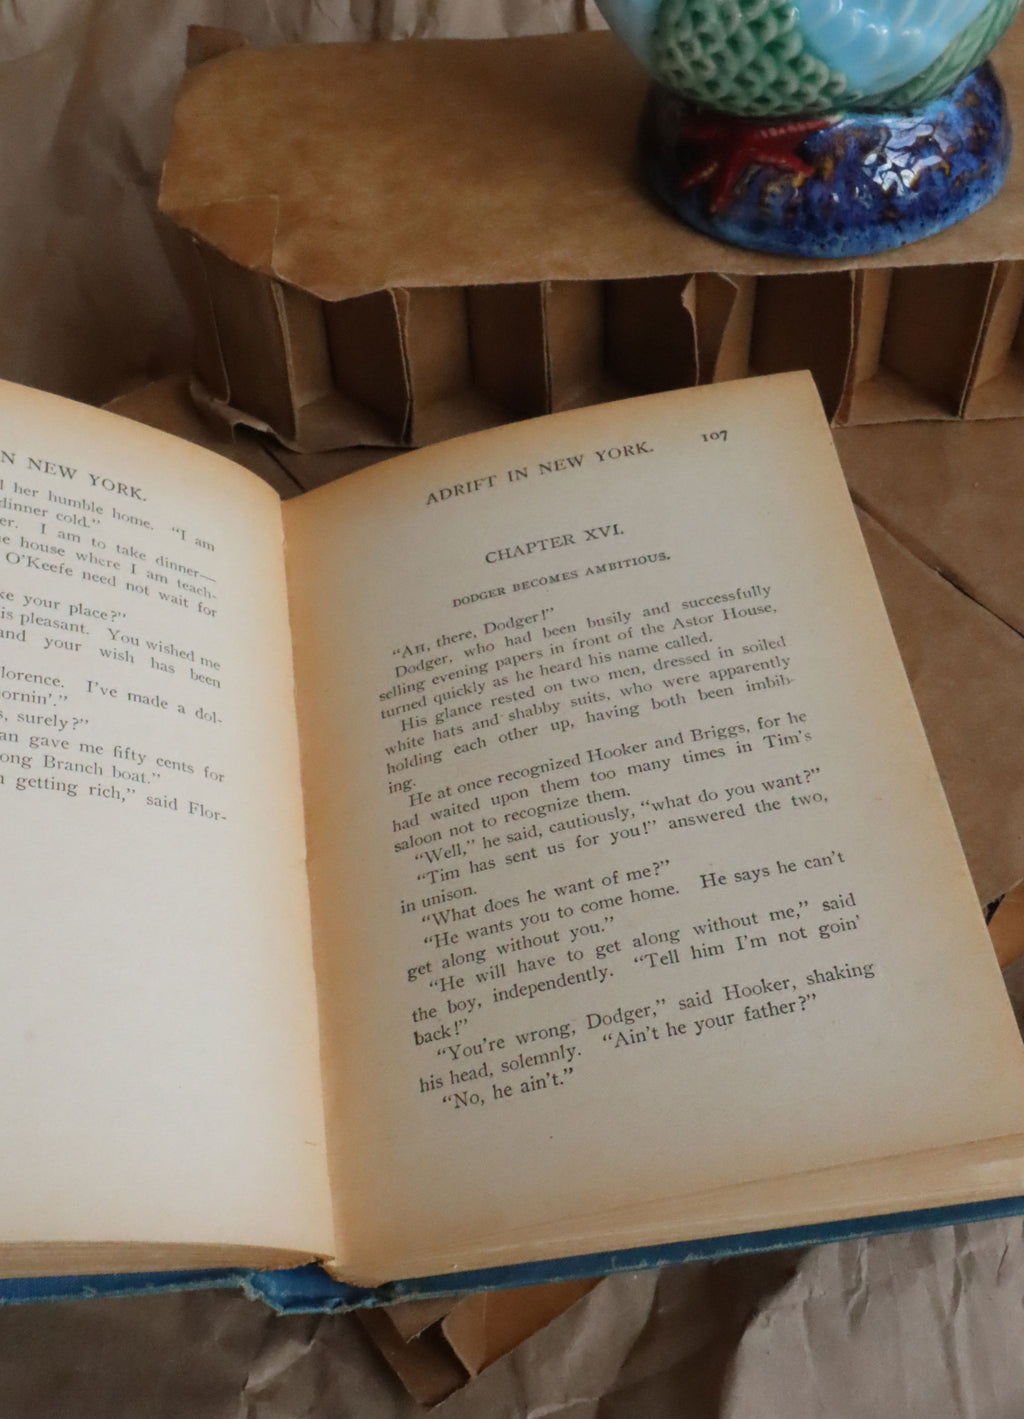 N NEW YORK.
her humble home. "I am
dinner cold."
er. I am to take dinner—
e house where I am teach-
O'Keefe need not wait for
ke your place?"
is pleasant. You wished me
and your wish has been
lorence. I've made a dol-
ornin'."
s, surely?"
an gave me fifty cents for
ong Branch boat."
n getting rich," said Flor-
ADRIFT IN NEW YORK. 107
CHAPTER XVI.
DODGER BECOMES AMBITIOUS.
"AH, there, Dodger!"
Dodger, who had been busily and successfully
selling evening papers in front of the Astor House,
turned quickly as he heard his name called.
His glance rested on two men, dressed in soiled
white hats and shabby suits, who were apparently
holding each other up, having both been imbib-
ing.
He at once recognized Hooker and Briggs, for he
had waited upon them too many times in Tim's
saloon not to recognize them.
"Well," he said, cautiously, "what do you want?"
"Tim has sent us for you!" answered the two,
in unison.
"What does he want of me?"
"He wants you to come home. He says he can't
get along without you."
"He will have to get along without me," said
the boy, independently. "Tell him I'm not goin'
back!"
"You're wrong, Dodger," said Hooker, shaking
his head, solemnly. "Ain't he your father?"
"No, he ain't."